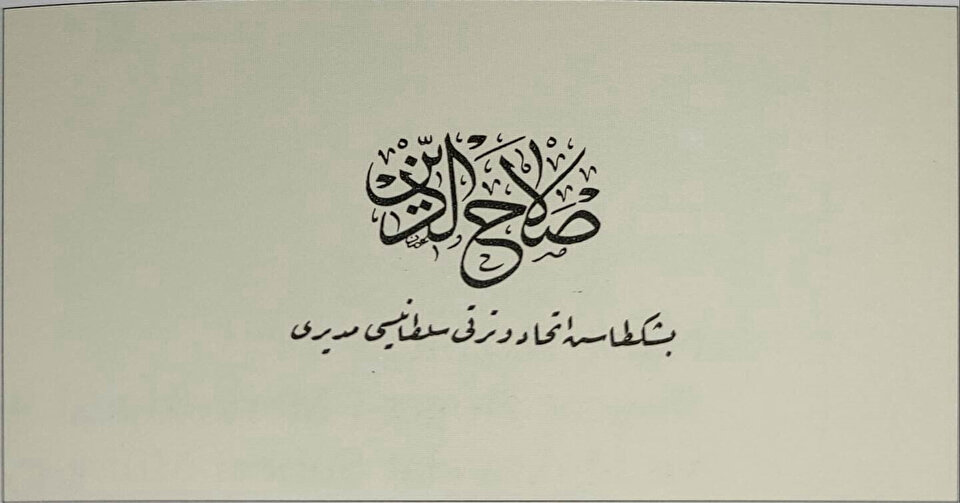 صلاح الدين
بشكطاش اتحاد و ترقى سلطانيسى مديرى